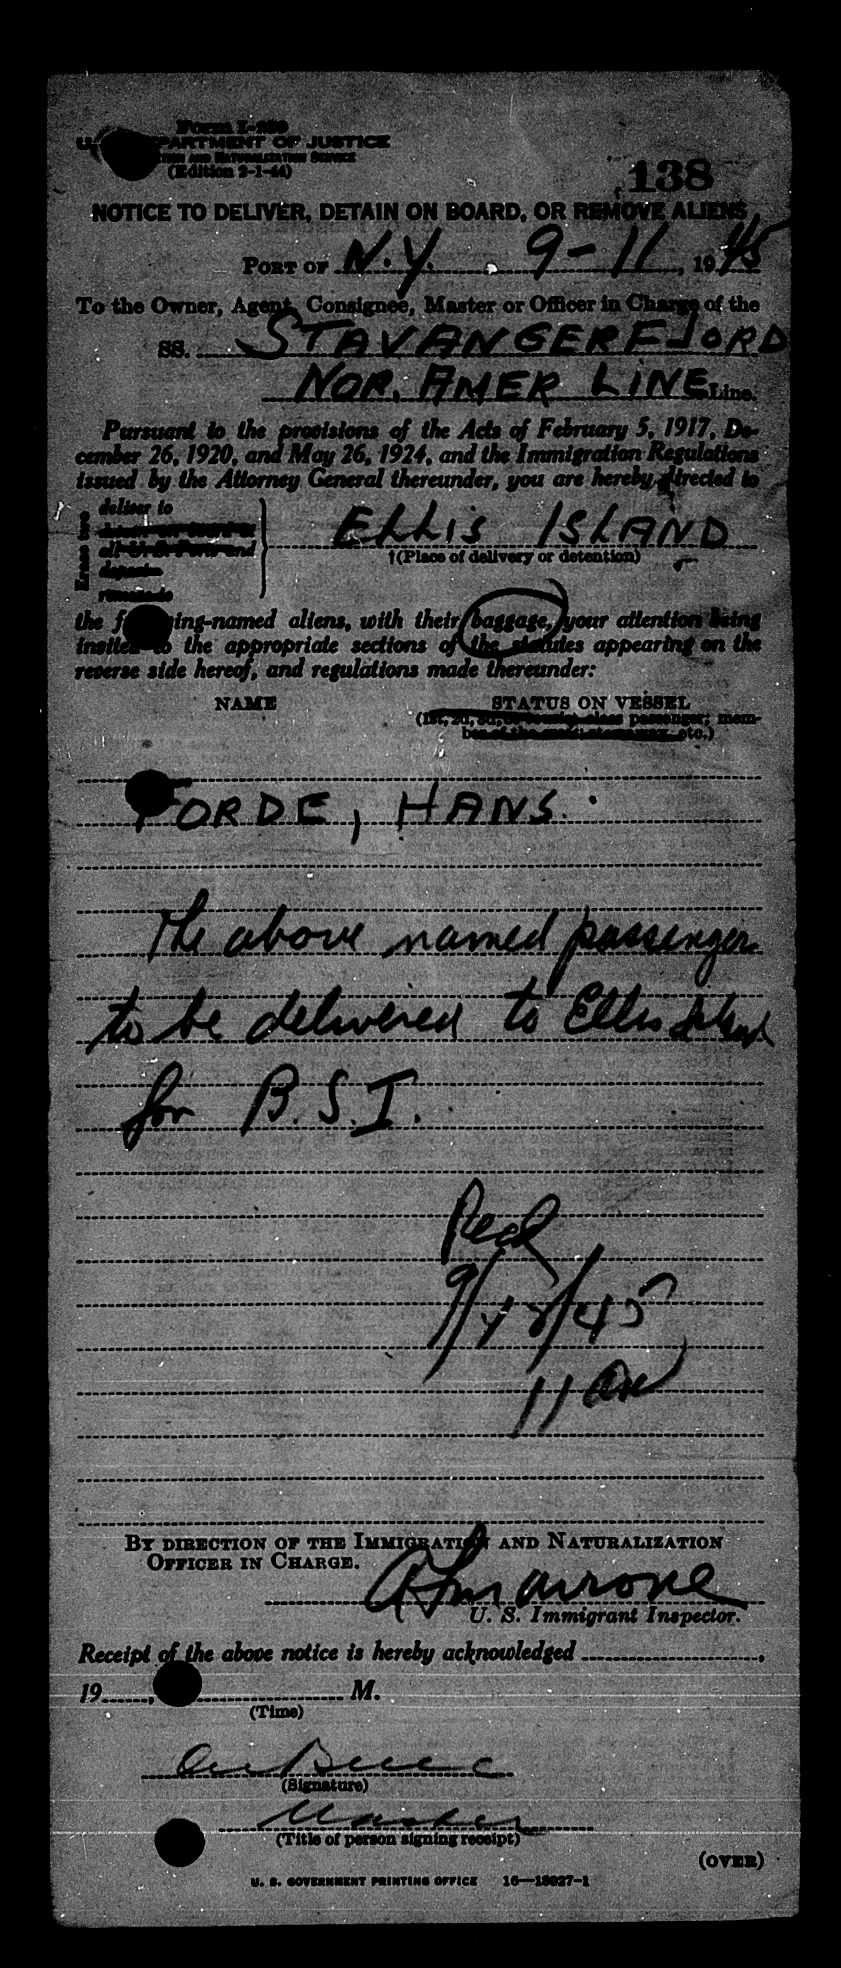 Form I-259
U. DEPARTMENT OF JUSTICE
IMMIGRATION AND NATURALIZATION SERVICE
(Edition 2-1-44)
138
NOTICE TO DELIVER, DETAIN ON BOARD, OR REMOVE ALIENS
PORT OF N.Y. 9-11, 1945
To the Owner, Agent, Consignee, Master or Officer in Charge of the
SS. STAVANGERFJORD
NOR. AMER LINE Line.
Pursuant to the provisions of the Acts of February 5, 1917, De-
cember 26, 1920, and May 26, 1924, and the Immigration Regulations
issued by the Attorney General thereunder, you are hereby directed to
Erase two
deliver to
ELLIS ISLAND
†(Place of delivery or detention)
the following-named aliens, with their baggage, your attention being
invited to the appropriate sections of the statutes appearing on the
reverse side hereof, and regulations made thereunder:
NAME STATUS ON VESSEL
(1st, 2d, 3d, passenger; mem-
ber of the etc.)
FORDE, HANS.
The above named passenger
to be delivered to Ellis Island
for B.S.I.
Recd
9/12/45
11 am
BY DIRECTION OF THE IMMIGRATION AND NATURALIZATION
OFFICER IN CHARGE.
U. S. Immigrant Inspector.
Receipt of the above notice is hereby acknowledged ,
19 , M.
(Time)
(Signature)
Master
(Title of person signing receipt)
(OVER)
U. S. GOVERNMENT PRINTING OFFICE 16—13027-1